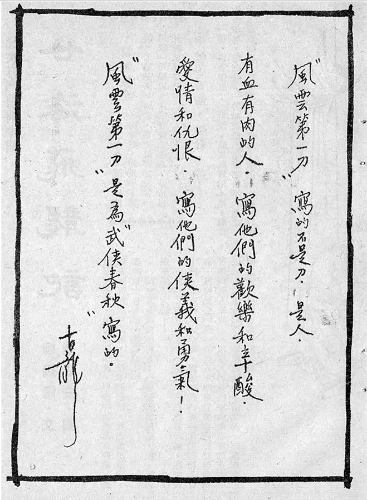 “風雲第一刀”寫的不是刀．是人．
有血有肉的人．寫他們的歡樂和辛酸．
愛情和仇恨．寫他們的俠義和勇氣！
“風雲第一刀”是為“武俠春秋”寫的．
古龍